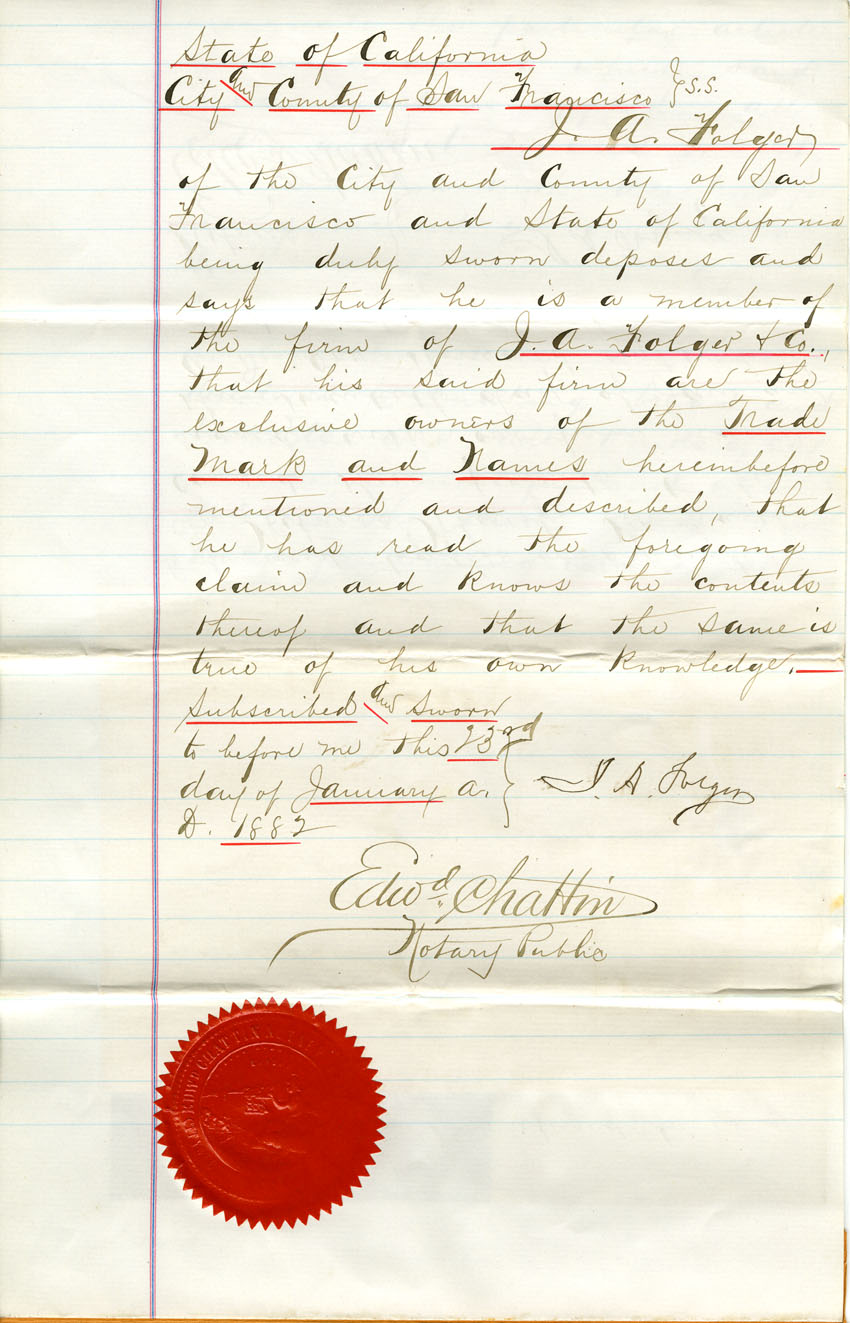 State of California
City and County of San Francisco } S.S.
J. A. Folger
of the City and County of San
Francisco and State of California
being duly sworn deposes and
says that he is a member of
the firm of J. A. Folger & Co.,
that his said firm are the
exclusive owners of the Trade
Mark and Names hereinbefore
mentioned and described, that
he has read the foregoing
claim and knows the contents
thereof and that the same is
true of his own knowledge.
Subscribed and Sworn
to before me this 23rd
day of January A.
D. 1882
J. A. Folger
Edwd. Chattin
Notary Public